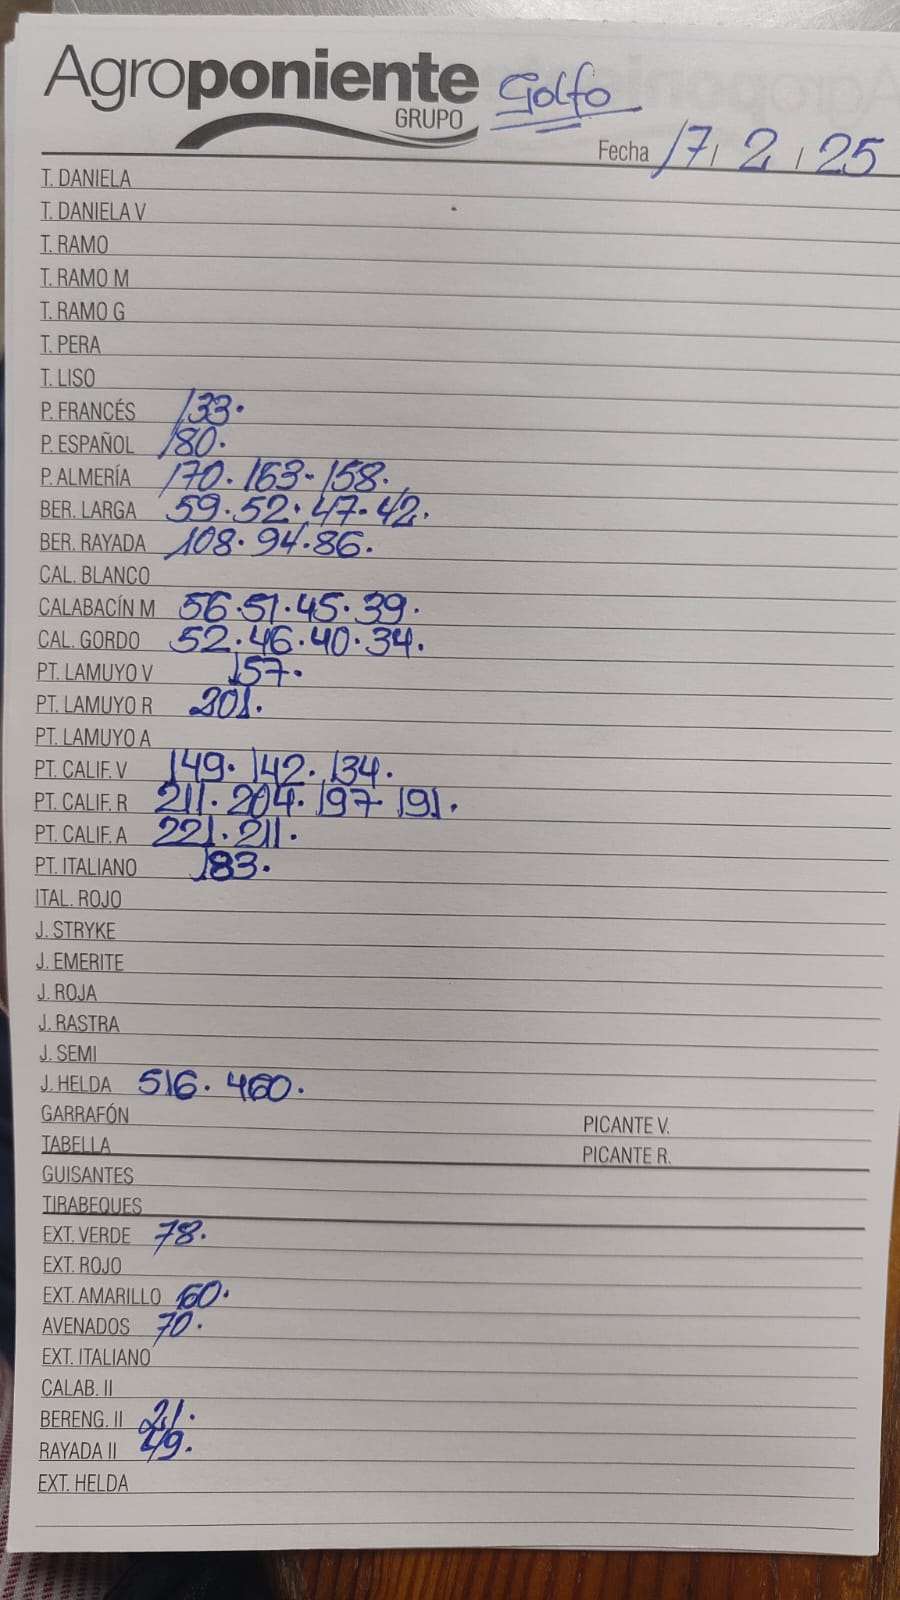 Agroponiente Golfo
GRUPO
Fecha 17 / 2 / 25
T. DANIELA
T. DANIELA V
T. RAMO
T. RAMO M
T. RAMO G
T. PERA
T. LISO
P. FRANCÉS 133.
P. ESPAÑOL 180.
P. ALMERÍA 170. 163. 158.
BER. LARGA 59. 52. 47. 42.
BER. RAYADA 108. 94. 86.
CAL. BLANCO
CALABACÍN M 56. 51. 45. 39.
CAL. GORDO 52. 46. 40. 34.
PT. LAMUYO V 157.
PT. LAMUYO R 201.
PT. LAMUYO A
PT. CALIF. V 149. 142. 134.
PT. CALIF. R 211. 204. 197 191.
PT. CALIF. A 221. 211.
PT. ITALIANO 183.
ITAL. ROJO
J. STRYKE
J. EMERITE
J. ROJA
J. RASTRA
J. SEMI
J. HELDA 516. 460.
GARRAFÓN PICANTE V.
TABELLA PICANTE R.
GUISANTES
TIRABEQUES
EXT. VERDE 78.
EXT. ROJO
EXT. AMARILLO 60.
AVENADOS 70.
EXT. ITALIANO
CALAB. II
BERENG. II 21.
RAYADA II 49.
EXT. HELDA